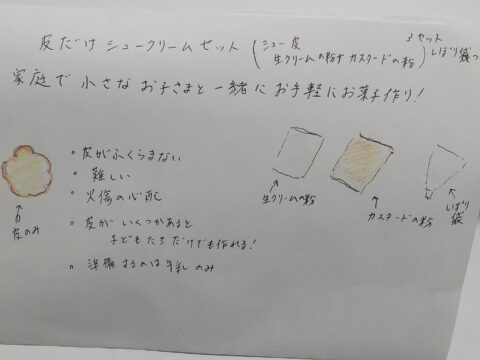 皮だけシュークリームセット(シュー皮
生クリームの粉+カスタードの粉)
3セット
しぼり袋つ
家庭で小さなお子さまと一緒にお手軽にお菓子作り!
。皮がふくらまない
。難しい
。火傷の心配
。皮がいくつかあると
子どもたちだけでも作れる!
。準備するのは牛乳のみ
皮のみ
生クリームの粉
カスタードの粉
しぼり
袋